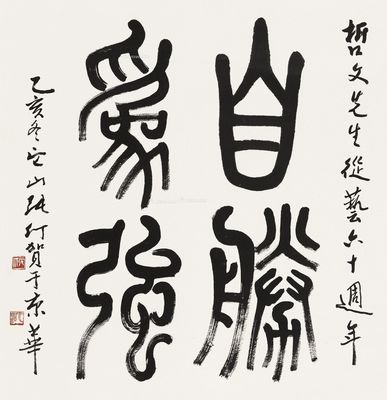 哲文先生從藝六十週年
自勝
為強
乙亥冬它山張仃賀于京華